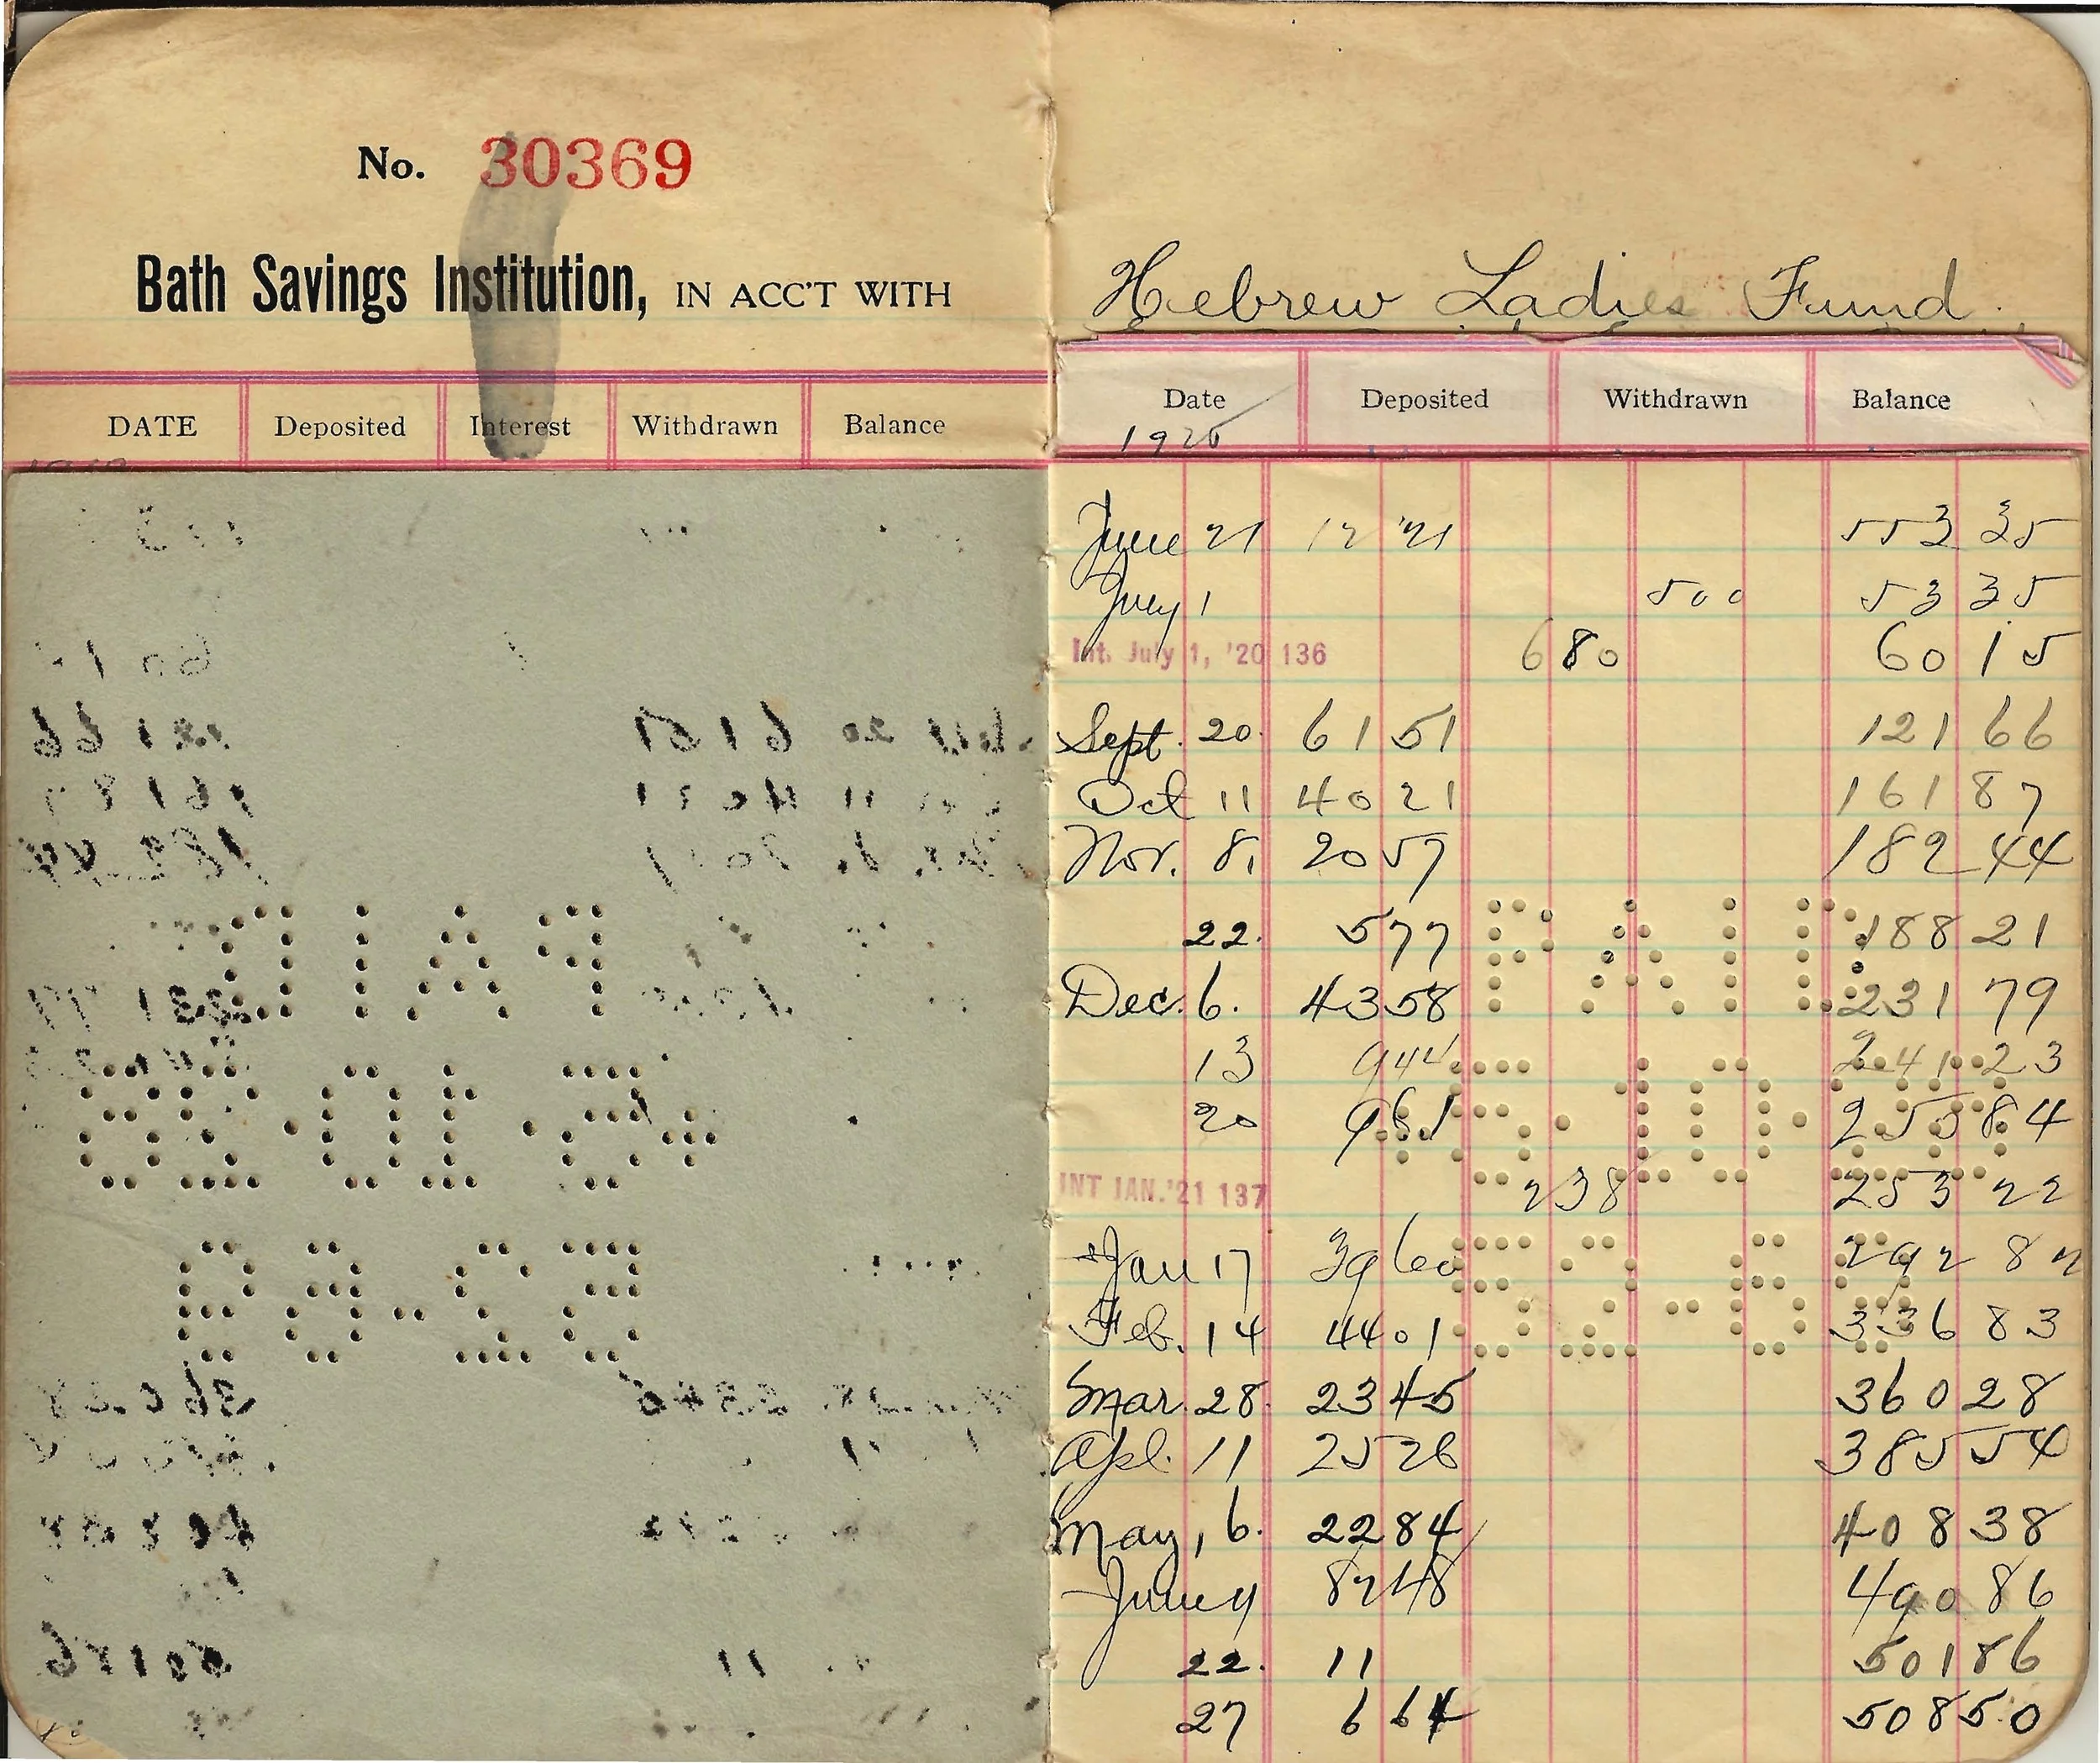 No. 30369
Bath Savings Institution, IN ACC'T WITH
DATE Deposited Interest Withdrawn Balance
Hebrew Ladies Fund
Date Deposited Withdrawn Balance
1920
June 21 12 21 553 35
July 1 500 53 35
Int. July 1, '20 136 6 80 60 15
Sept. 20. 61 51 121 66
Oct 11 40 21 161 87
Nov. 8. 20 57 182 44
22. 5 77 188 21
Dec. 6. 43 58 231 79
13 9 44 241 23
20 9 61 250 84
INT JAN. '21 137 2 38 253 22
Jan 17 39 60 292 82
Feb. 14 44 01 336 83
Mar. 28. 23 45 360 28
Apl. 11 25 26 385 54
May, 6. 22 84 408 38
June 82 48 490 86
22. 11 501 86
27 6 64 508 50
PAID
5·10·28
52-69